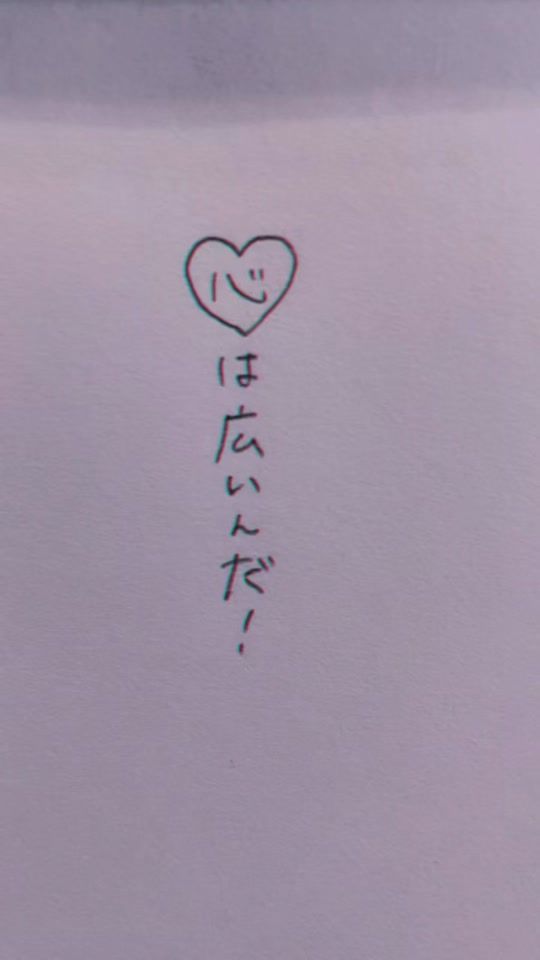 心は広いんだ！